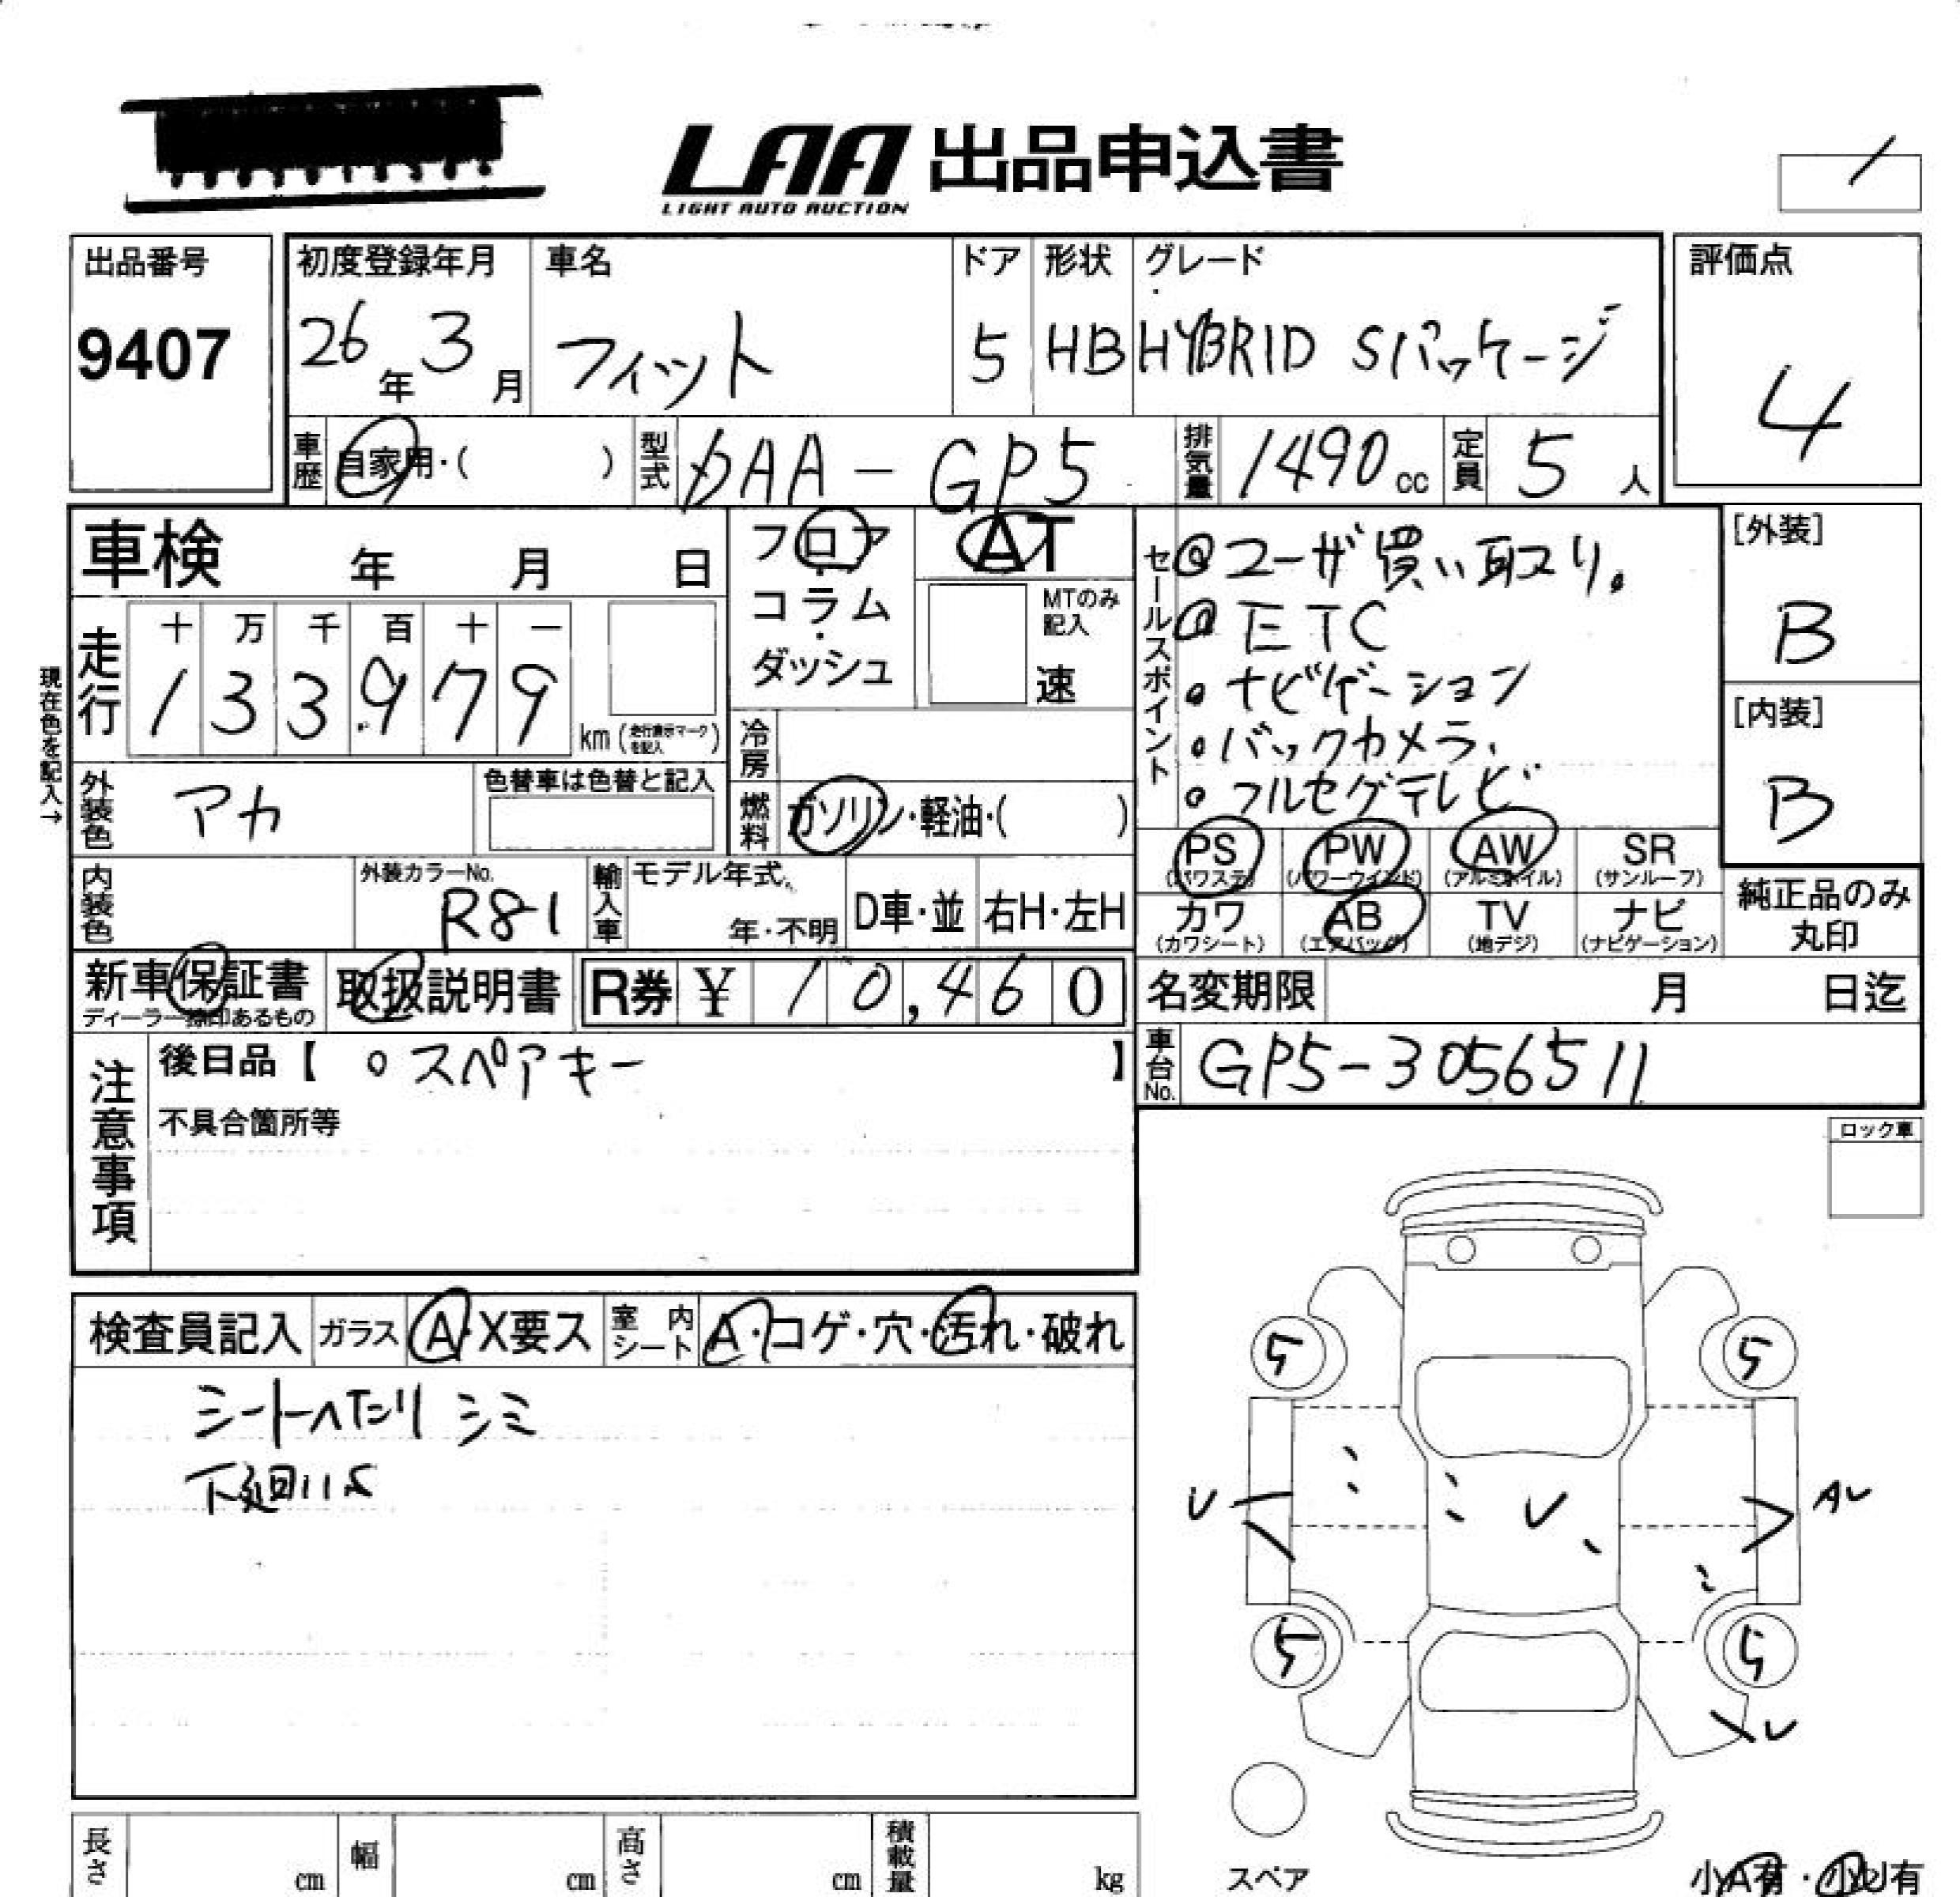 LAA 出品申込書
LIGHT AUTO AUCTION
出品番号
9407
初度登録年月
26年3月
車名
フィット
ドア
5
形状
HB
グレード
HYBRID Sパッケージ
評価点
4
車歴 自家用・( )
型式 DAA-GP5
排気量 1490cc
定員 5人
車検 年 月 日
フロア・コラム・ダッシュ
AT
MTのみ記入
速
セールスポイント
@ユーザ買い取り。
@ETC
・ナビゲーション
・バックカメラ、
・フルセグテレビ
[外装]
B
[内装]
B
現在色を記入→
走行
十 万 千 百 十 一
1 3 3 9 7 9
km(走行表示マークを記入)
冷房
燃料 ガソリン・軽油・( )
外装色 アカ
色替車は色替と記入
内装色
外装カラーNo.
R81
輸入車
モデル年式
年・不明
D車・並
右H・左H
PS (パワステ)
PW (パワーウインド)
AW (アルミホイル)
SR (サンルーフ)
カワ (カワシート)
AB (エアバッグ)
TV (地デジ)
ナビ (ナビゲーション)
純正品のみ丸印
新車保証書
ディーラー捺印あるもの
取扱説明書
R券 ¥ 10,460
名変期限 月 日迄
車台No. GP5-3056511
注意事項
後日品【 ○スペアキー 】
不具合箇所等
ロック車
検査員記入
ガラス A・X要ス
室内シート A・コゲ・穴・汚れ・破れ
シートヘたり シミ
5
5
U
U
AU
5
5
XU
スペア
長さ cm
幅 cm
高さ cm
積載量 kg
小A有・小U有